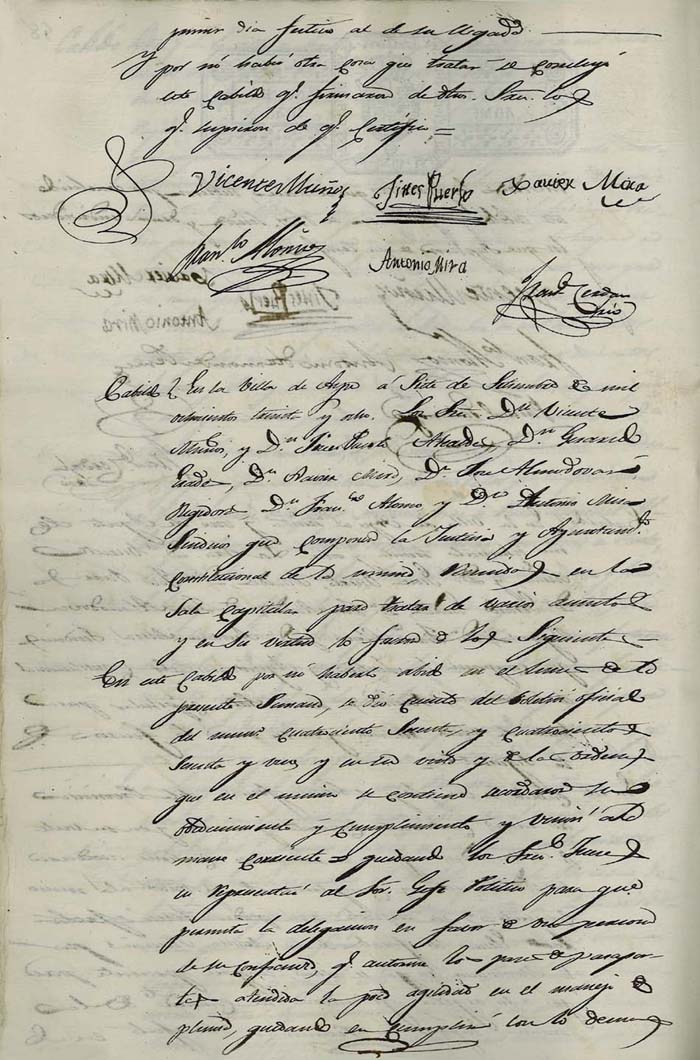 primer dia festivo al de su llegada.
Y por no haber otra cosa que tratar se concluyó
este Cabildo q.e firmaron dichos Sres. los
q.e supieron de q.e Certifico =
Vicente Muñoz Jines Puerto Xavier Mira
Fran.co Alonso Antonio Mira
Cabildo En la Villa de Aspe á Siete de Setiembre de mil
ochocientos treinta y ocho. Los Sres. Dn. Vicente
Muñoz, y Dn. Jines Puerto Alcaldes, Dn. Gerardo
Dn. Xavier Miró, Dn. Jose Almodovar
Regidores Dn. Fran.co Alonso y Dn. Antonio Mira
Sindicos que componen la Justicia y Ayuntam.to
Constitucional de la misma Reunidos en la
Sala Capitular para tratar de varios asuntos
y en su virtud lo fueron de los Siguientes
En este Cabildo por no haberlo abido en el Lunes de la
presente Semana, se dio cuenta del Boletin oficial
del num. Cuatrocientos Sesenta, y Cuatrocientos
Sesenta y uno, y en su vista y de las ordenes
que en el mismo se contienen acordaron su
obedecimiento y Cumplimiento
quedando los Sres.
en Representar al Sor. Gefe Politico para que
permita la delegacion en favor de una persona
de su confianza, q.e autorice los pases de pasapor
tes atendida la poca agilidad en el manejo de
pluma, quedando en cumplir con lo demas